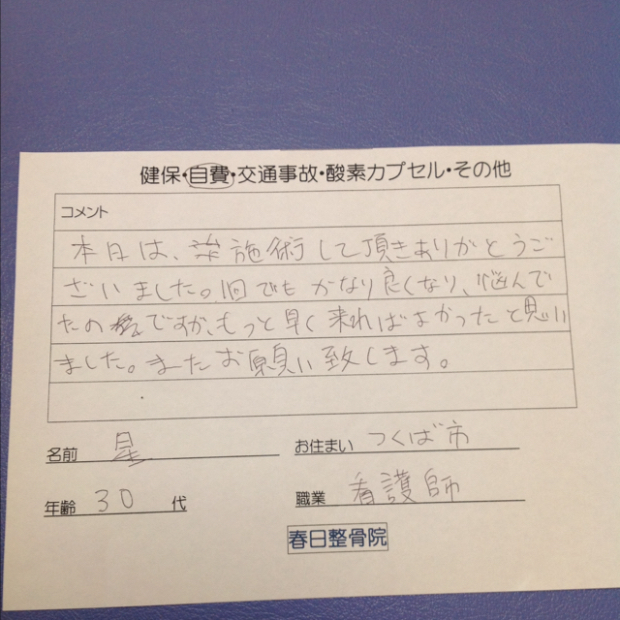 健保・自費・交通事故・酸素カプセル・その他
コメント
本日は、施術して頂きありがとうご
ざいました。1回でもかなり良くなり、悩んで
たのですが、もっと早く来ればよかったと思い
ました。またお願い致します。
名前 星 お住まい つくば市
年齢 30 代 職業 看護師
春日整骨院